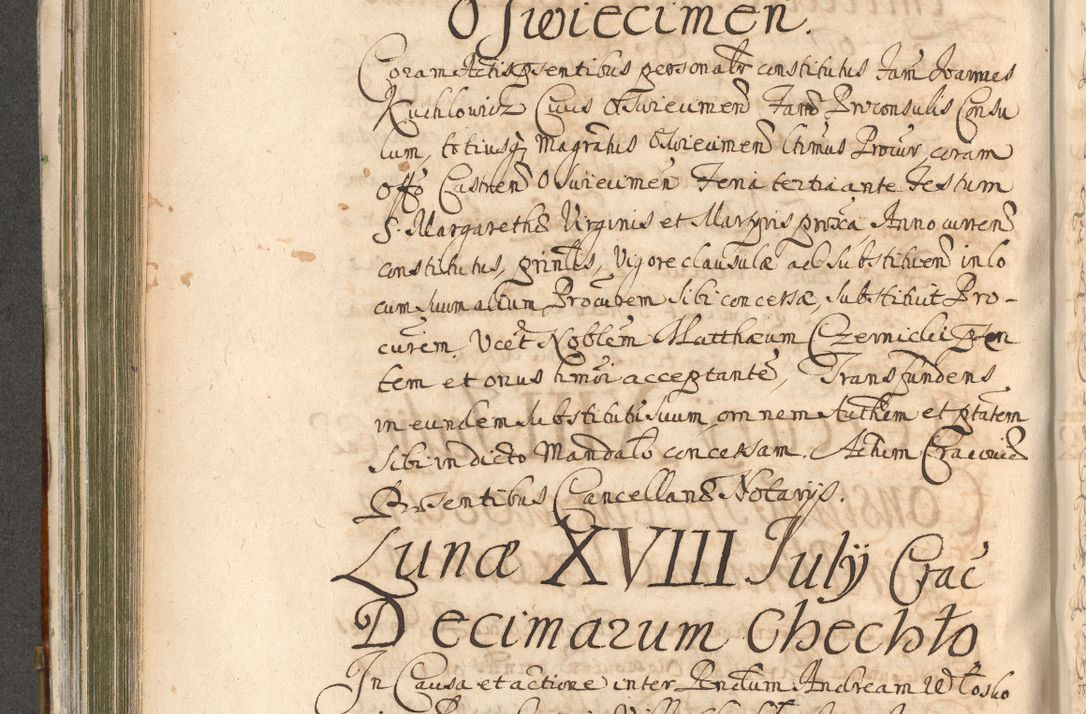 Oswiecimen.
Coram Actis psentibus personalr constitutus Fam Joannes
Kuchlowicz Civis Oswiecimen Famo Proconsulis Consu
lum, totiusq Magratus Oswiecimen ltimus Procur, coram
Offo Castren Oswiecimen Feria tertia ante Festum
S. Margarethæ Virginis et Martyris proxa Anno curren
constitutus, prinlis, vigore clausulæ ad substituen in lo
cum suum alium Procurem sibi concessæ, substituit Pro-
curem, Ucet Noblem Matthæum Czernicki psen
tem et onus hmoi acceptante, Transfundens
in eundem substitutū suum omnem Authem et ptatem
sibi in dicto Mandato concessam. Actum Cracoviæ
Præsentibus Cancellariæ Notarijs.
Lunæ XVIII July Crac
Decimarum Chechło
In Causa et actione inter Rndum Andream Włosko